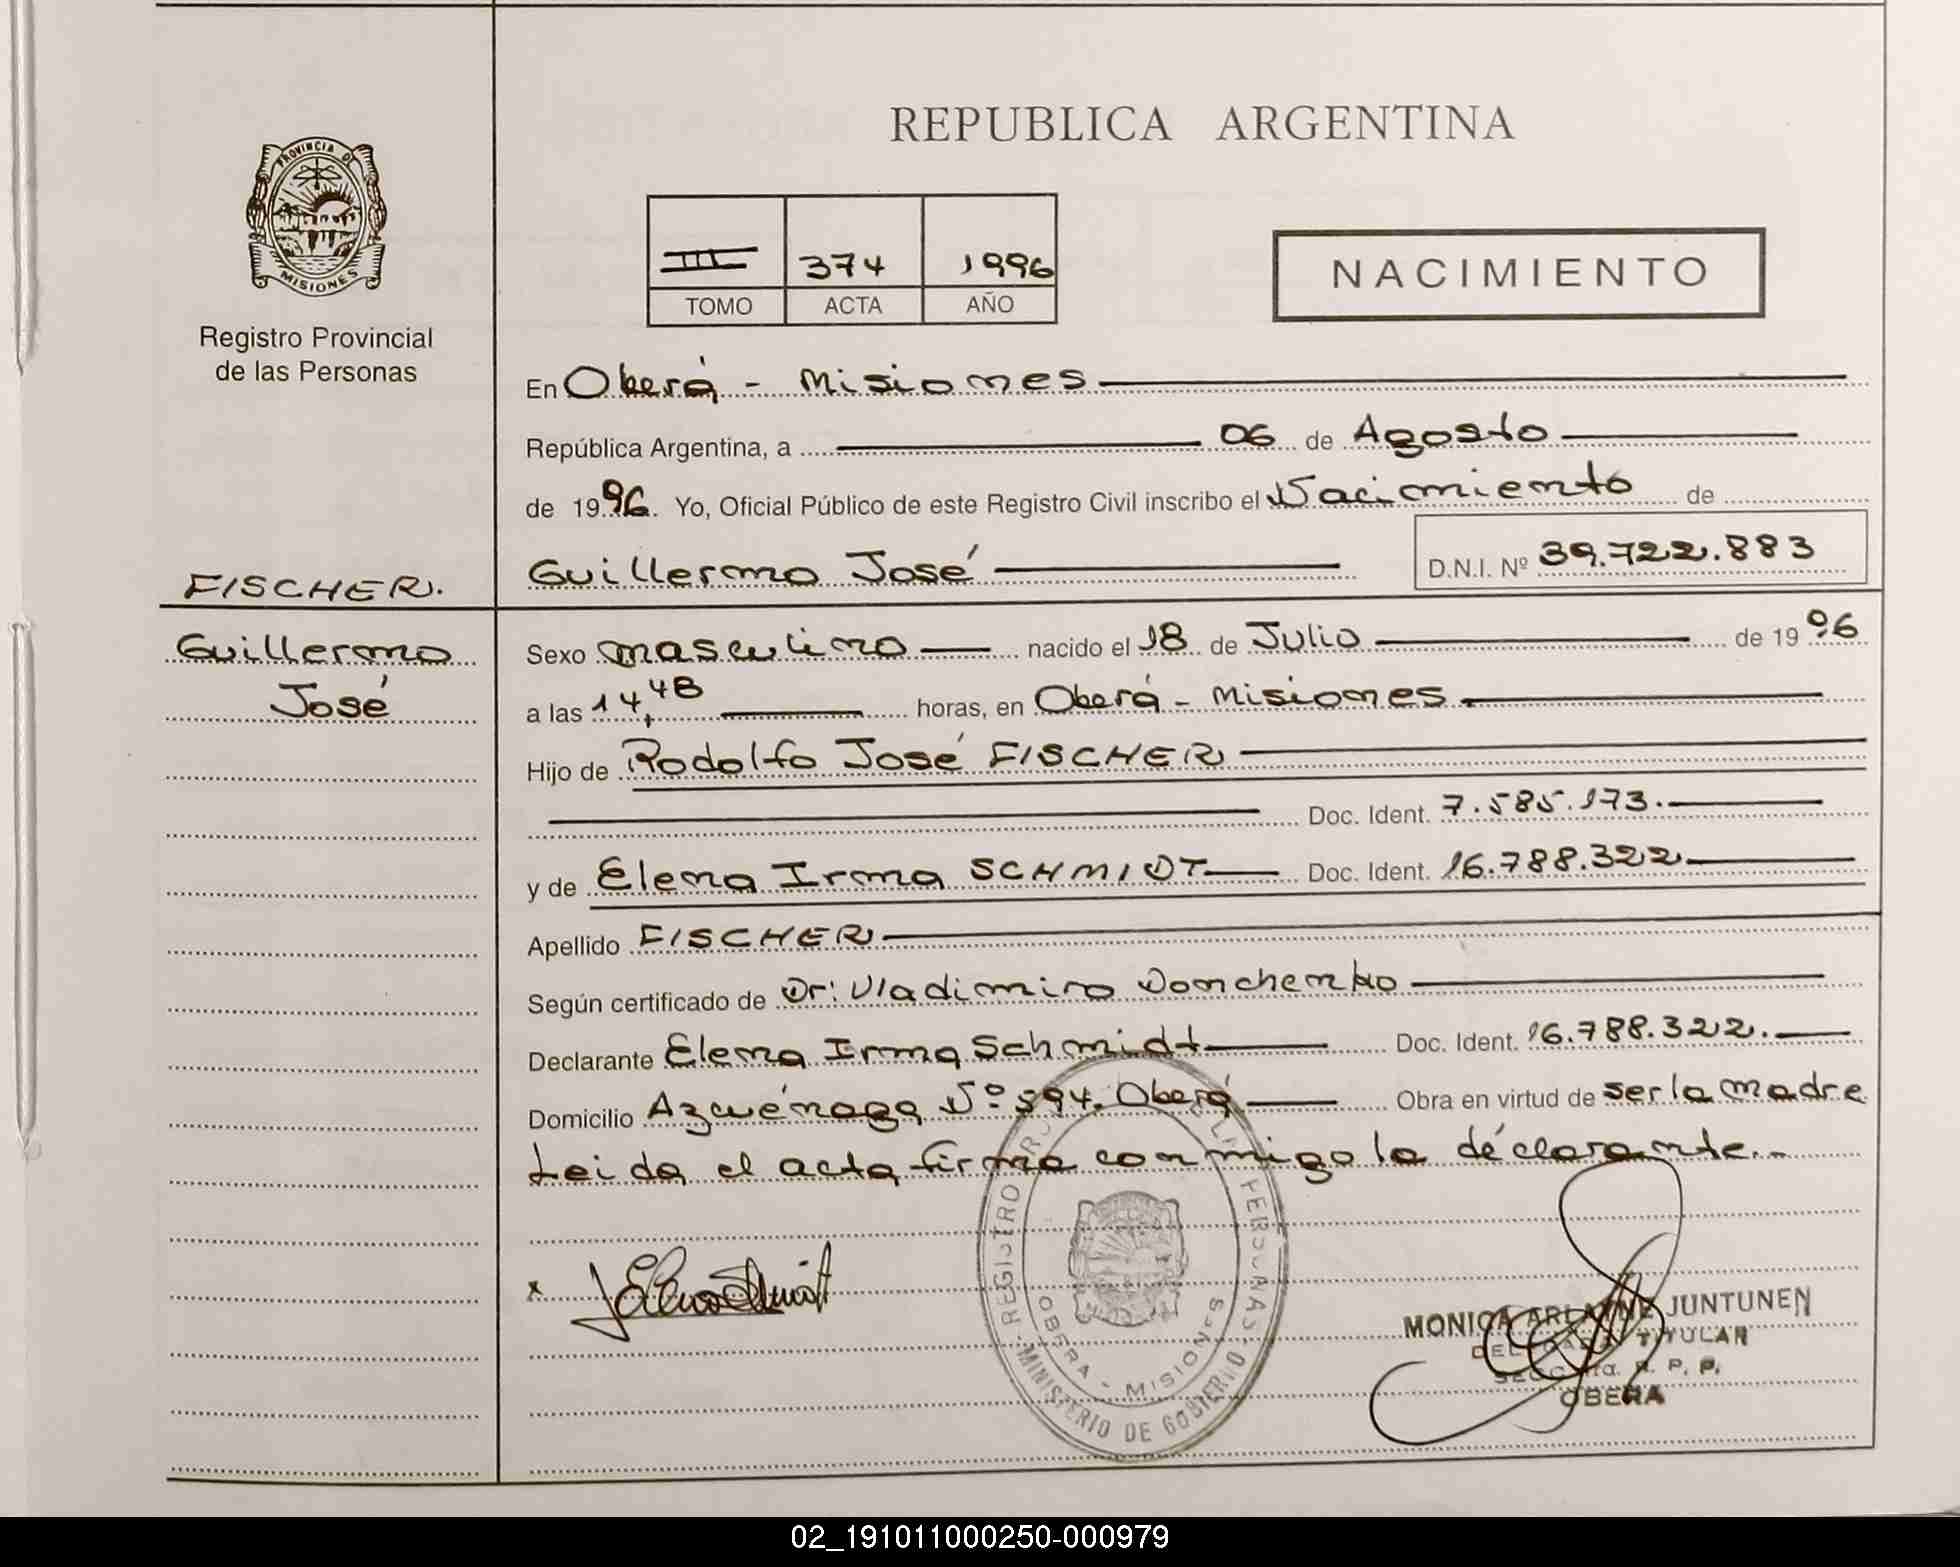 REPUBLICA ARGENTINA
PROVINCIA DE
MISIONES
Registro Provincial
de las Personas
III 374 1996
TOMO ACTA AÑO
NACIMIENTO
En Oberá - Misiones
República Argentina, a 06 de Agosto
de 1996. Yo, Oficial Público de este Registro Civil inscribo el Nacimiento de
Guillermo José D.N.I. Nº 39.722.883
FISCHER.
Guillermo
José
Sexo masculino nacido el 18 de Julio de 1996
a las 14,48 horas, en Oberá - Misiones
Hijo de Rodolfo José FISCHER
Doc. Ident. 7.585.173.
y de Elena Irma SCHMIDT Doc. Ident. 16.788.322
Apellido FISCHER
Según certificado de Dr: Vladimiro Donchenko
Declarante Elena Irma Schmidt Doc. Ident. 16.788.322.
Domicilio Azcuénaga Nº 594. Oberá Obra en virtud de ser la madre
Leida el acta firma conmigo la déclarante.-
x
REGISTRO PERSONAS
MINISTERIO DE GOBIERNO
OBERA - MISIONES
MONICA ARLAINE JUNTUNEN
TITULAR
R. P. P.
OBERA
02_191011000250-000979